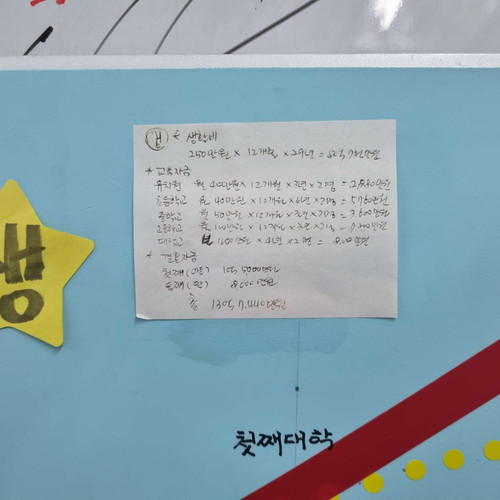 * 생활비
250만원 × 12개월 × 29년 = 8억 7천만원
* 교육자금
유치원 월 40만원 × 12개월 × 3년 × 2명 = 2,880만원
초등학교 월 40만원 × 12개월 × 6년 × 2명 = 5,760만원
중학교 월 50만원 × 12개월 × 3년 × 2명 = 3,600만원
고등학교 월 100만원 × 12개월 × 3년 × 2명 = 7,200만원
대학교 × 4년 × 2명 =
* 결혼자금
첫째(아들) 1억 5000만원
둘째(딸) 8000만원
총 13억 7,440만원
생
첫째대학